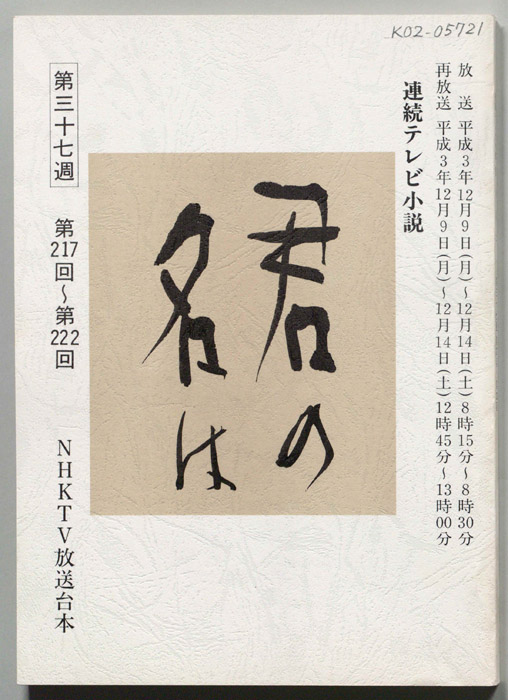 K02-05721
放送 平成3年12月9日(月)〜12月14日(土)8時15分〜8時30分
再放送 平成3年12月9日(月)〜12月14日(土)12時45分〜13時00分
連続テレビ小説
君の
名は
第三十七週
第217回〜第222回
NHKTV放送台本